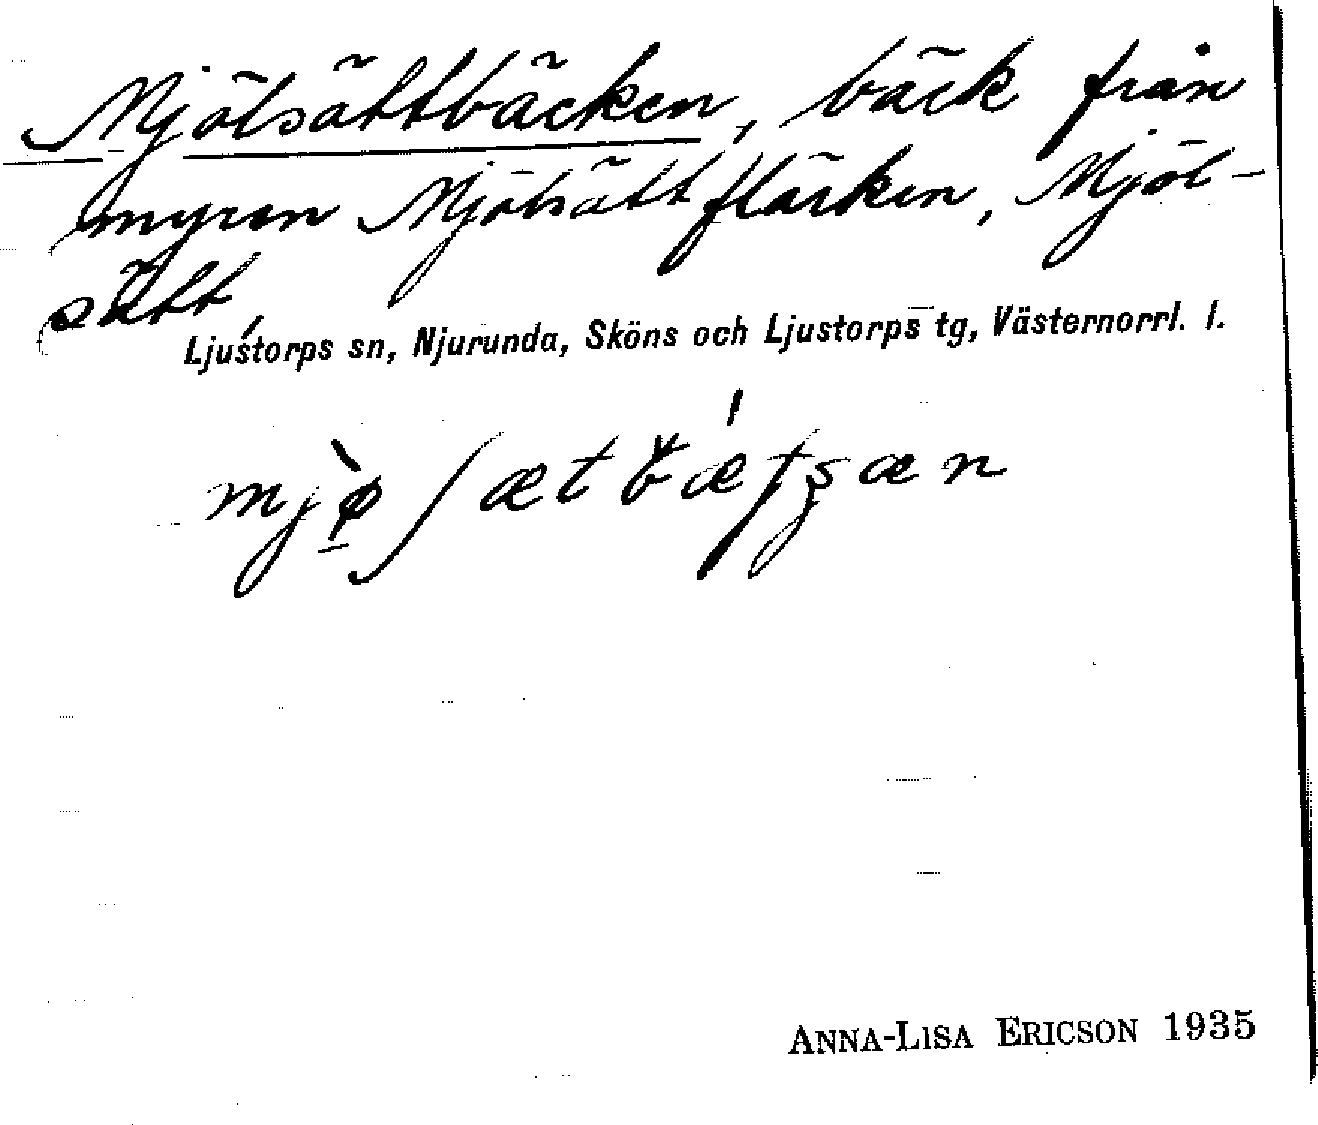 Mjölsättbäcken, bäck från
myren Mjölsättfläcken, Mjöl-
sätt,
Ljustorps sn, Njurunda, Sköns och Ljustorps tg, Västernorrl. l.
ANNA-LISA ERICSON 1935